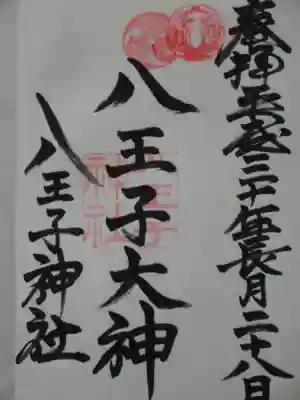 奉拝平成三十年長月二十八日
八王子大神
八王子神社